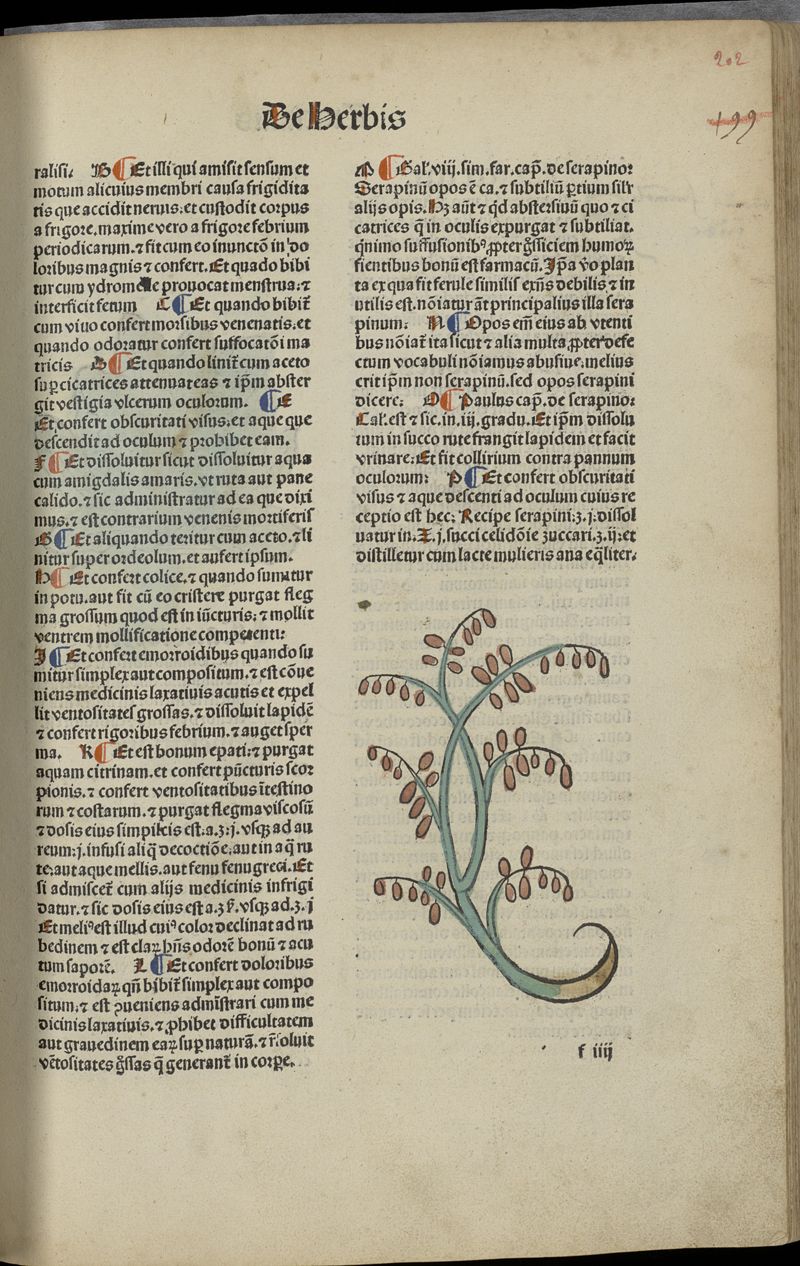 202
De Herbis
199
ralisi. B ¶ Et illi qui amisit sensum et
motum alicuius membri causa frigidita
tis que accidit neruis: et custodit corpus
a frigore. maxime vero a frigore febrium
periodicarum. ⁊ fit cum eo inunctō in do
loribus magnis ⁊ confert. Et quādo bibi
tur cum ydromelle prouocat menstrua: ⁊
interficit fetum C ¶ Et quando bibit̄
cum vino confert morsibus venenatis. et
quando odoratur confert suffocatōi ma
tricis D ¶ Et quando linit̄ cum aceto
suꝑ cicatrices attenuat eas ⁊ ip̄m abster
git vestigia vlcerum oculorum. ¶ E
Et confert obscuritati visus. et aque que
descendit ad oculum ⁊ prohibet eam.
F ¶ Et dissoluitur sicut dissoluitur aqua
cum amigdalis amaris. vt ruta aut pane
calido. ⁊ sic administratur ad ea que dixi
mus. ⁊ est contrarium venenis mortiferis
G ¶ Et aliquando teritur cum aceto. ⁊ li
nitur super ordeolum. et aufert ipsum.
H ¶ Et confert colice. ⁊ quando sumitur
in potu. aut fit cū eo cristere purgat fleg
ma grossum quod est in iūcturis: ⁊ mollit
ventrem mollificatione competenti:
I ¶ Et confert emorroidibus quando su
mitur simplex aut compositum. ⁊ est cōue
niens medicinis laxatiuis acutis et expel
lit ventositates grossas. ⁊ dissoluit lapidē
⁊ confert rigoribus febrium. ⁊ auget sper
ma. K ¶ Et est bonum epati: ⁊ purgat
aquam citrinam. et confert pūcturis scor
pionis. ⁊ confert ventositatibus ītestino
rum ⁊ costarum. ⁊ purgat flegma viscosū
⁊ dosis eius simplicis est. a. ʒ. j. vsqꝫ ad au
reum. j. infusi aliq̄ decoctiōe. aut in aq̄ ru
te. aut aque mellis. aut fenu fenugreci. Et
si admiscet̄ cum alijs medicinis infrigi
datur. ⁊ sic dosis eius est a. ʒ ꝭ. vsqꝫ ad. ʒ. j
Et meliꝰ est illud cuiꝰ color declinat ad ru
bedinem ⁊ est claꝝ hn̄s odorē bonū ⁊ acu
tum saporē. L ¶ Et confert doloribus
emorroidaꝝ qn̄ bibit̄ simplex aut compo
situm. ⁊ est ꝯueniens admīstrari cum me
dicinis laxatiuis. ⁊ ꝓhibet difficultatem
aut grauedinem eaꝝ suꝑ naturā. ⁊ r̄soluit
vētositates g̊ssas q̄ generant̄ in corpe.
M ¶ Gal'. viij. sim. far. cap̄. de serapino:
Serapinū opos ē ca. ⁊ subtiliū ꝑtium sil'r
alijs opis. Hꝫ aūt ⁊ qd abstersiuū quo ⁊ ci
catrices q̄ in oculis expurgat ⁊ subtiliat.
q̄nimo suffusionibꝰ, ꝓpter g̊ssiciem humoꝝ
fientibus bonū est farmacū. Ip̄a v̊o plan
ta ex qua fit ferule similis exn̄s debilis. ⁊ in
utilis est. nōiatur āt principalius illa sera
pinum: N ¶ Opos em̄ eius ab vtenti
bus nōiat̄ ita sicut ⁊ alia multa, ꝓpter defe
ctum vocabuli nōiamus abusiue. melius
erit ip̄m non serapinū. sed opos serapini
dicere: O ¶ Paulus cap̄. de serapino:
Cal'. est ⁊ sic. in. iij. gradu. Et ip̄m dissolu
tum in succo rute frangit lapidem et facit
vrinare: Et fit collirium contra pannum
oculorum: P ¶ Et confert obscuritati
visus ⁊ aque descenti ad oculum cuius re
ceptio est hec: Recipe serapini: ʒ. j: dissol
uatur in. j. succi celidōie zuccari. ʒ. ij: et
distilletur cum lacte mulieris ana eq̄liter.
f iiij